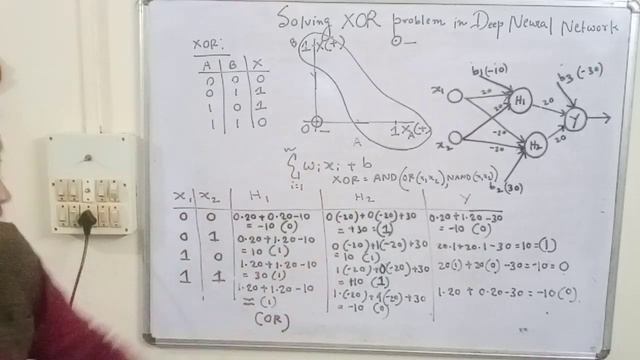 Solving XOR problem in Deep Neural Network
XOR:
A B X
0 0 0
0 1 1
1 0 1
1 1 0
B 1 X(+) 0 -
0 - 1 X(+)
A
b₁(-10)
b₃(-30)
x₁ 20 H₁ 20
20 Y
-20
x₂ -20 H₂ 20
b₂(30)
n
Σ wᵢxᵢ + b
i=1
XOR = AND(OR(x₁,x₂), NAND(x₁,x₂))
X₁ X₂ H₁ H₂ Y
0 0 0.20+0.20-10 0(-20)+0(-20)+30 0.20+1.20-30
= -10 (0) = +30 = (1) = -10 (0)
0 1 0.20+1.20-10 0(-20)+1(-20)+30 20.1+20.1-30=10=(1)
= 10 (1) = 10 (1)
1 0 1.20+1.20-10 1(-20)+0(-20)+30 20(1)+20(0)-30=-10=0
= 30 (1) = +10 (1)
1 1 1.20+1.20-10 1.(-20)+1(-20)+30 1.20+0.20-30=-10(0)
= (1) = -10 (0)
(OR)